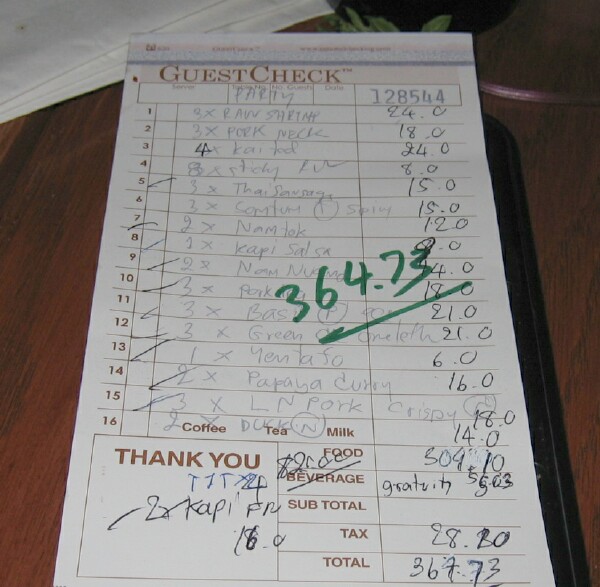 GUESTCHECK™
PARTY 128544
1 3 x RAW SHRIMP 24.0
2 3 x PORK NECK 18.0
3 4 x Kaitod 24.0
4 8 x sticky 8.0
5 3 x Thai Sausage 15.0
6 3 x Somtum (T) Spicy 15.0
7 2 x Namtok 12.0
8 1 x Kapi Salsa
9 2 x Nam 14.0
10 3 x Pork 18.0
11 3 x Basil (P) 21.0
12 3 x Green 21.0
13 1 x Yentafo 6.0
14 2 x Papaya Curry 16.0
15 3 x L N Pork Crispy 18.0
16 2 x DUCK (N) 14.0
Coffee Tea Milk
364.73
THANK YOU
FOOD 304.10
BEVERAGE gratuity
2x Kapi FR
16.0
SUB TOTAL
TAX 28.20
TOTAL 364.73